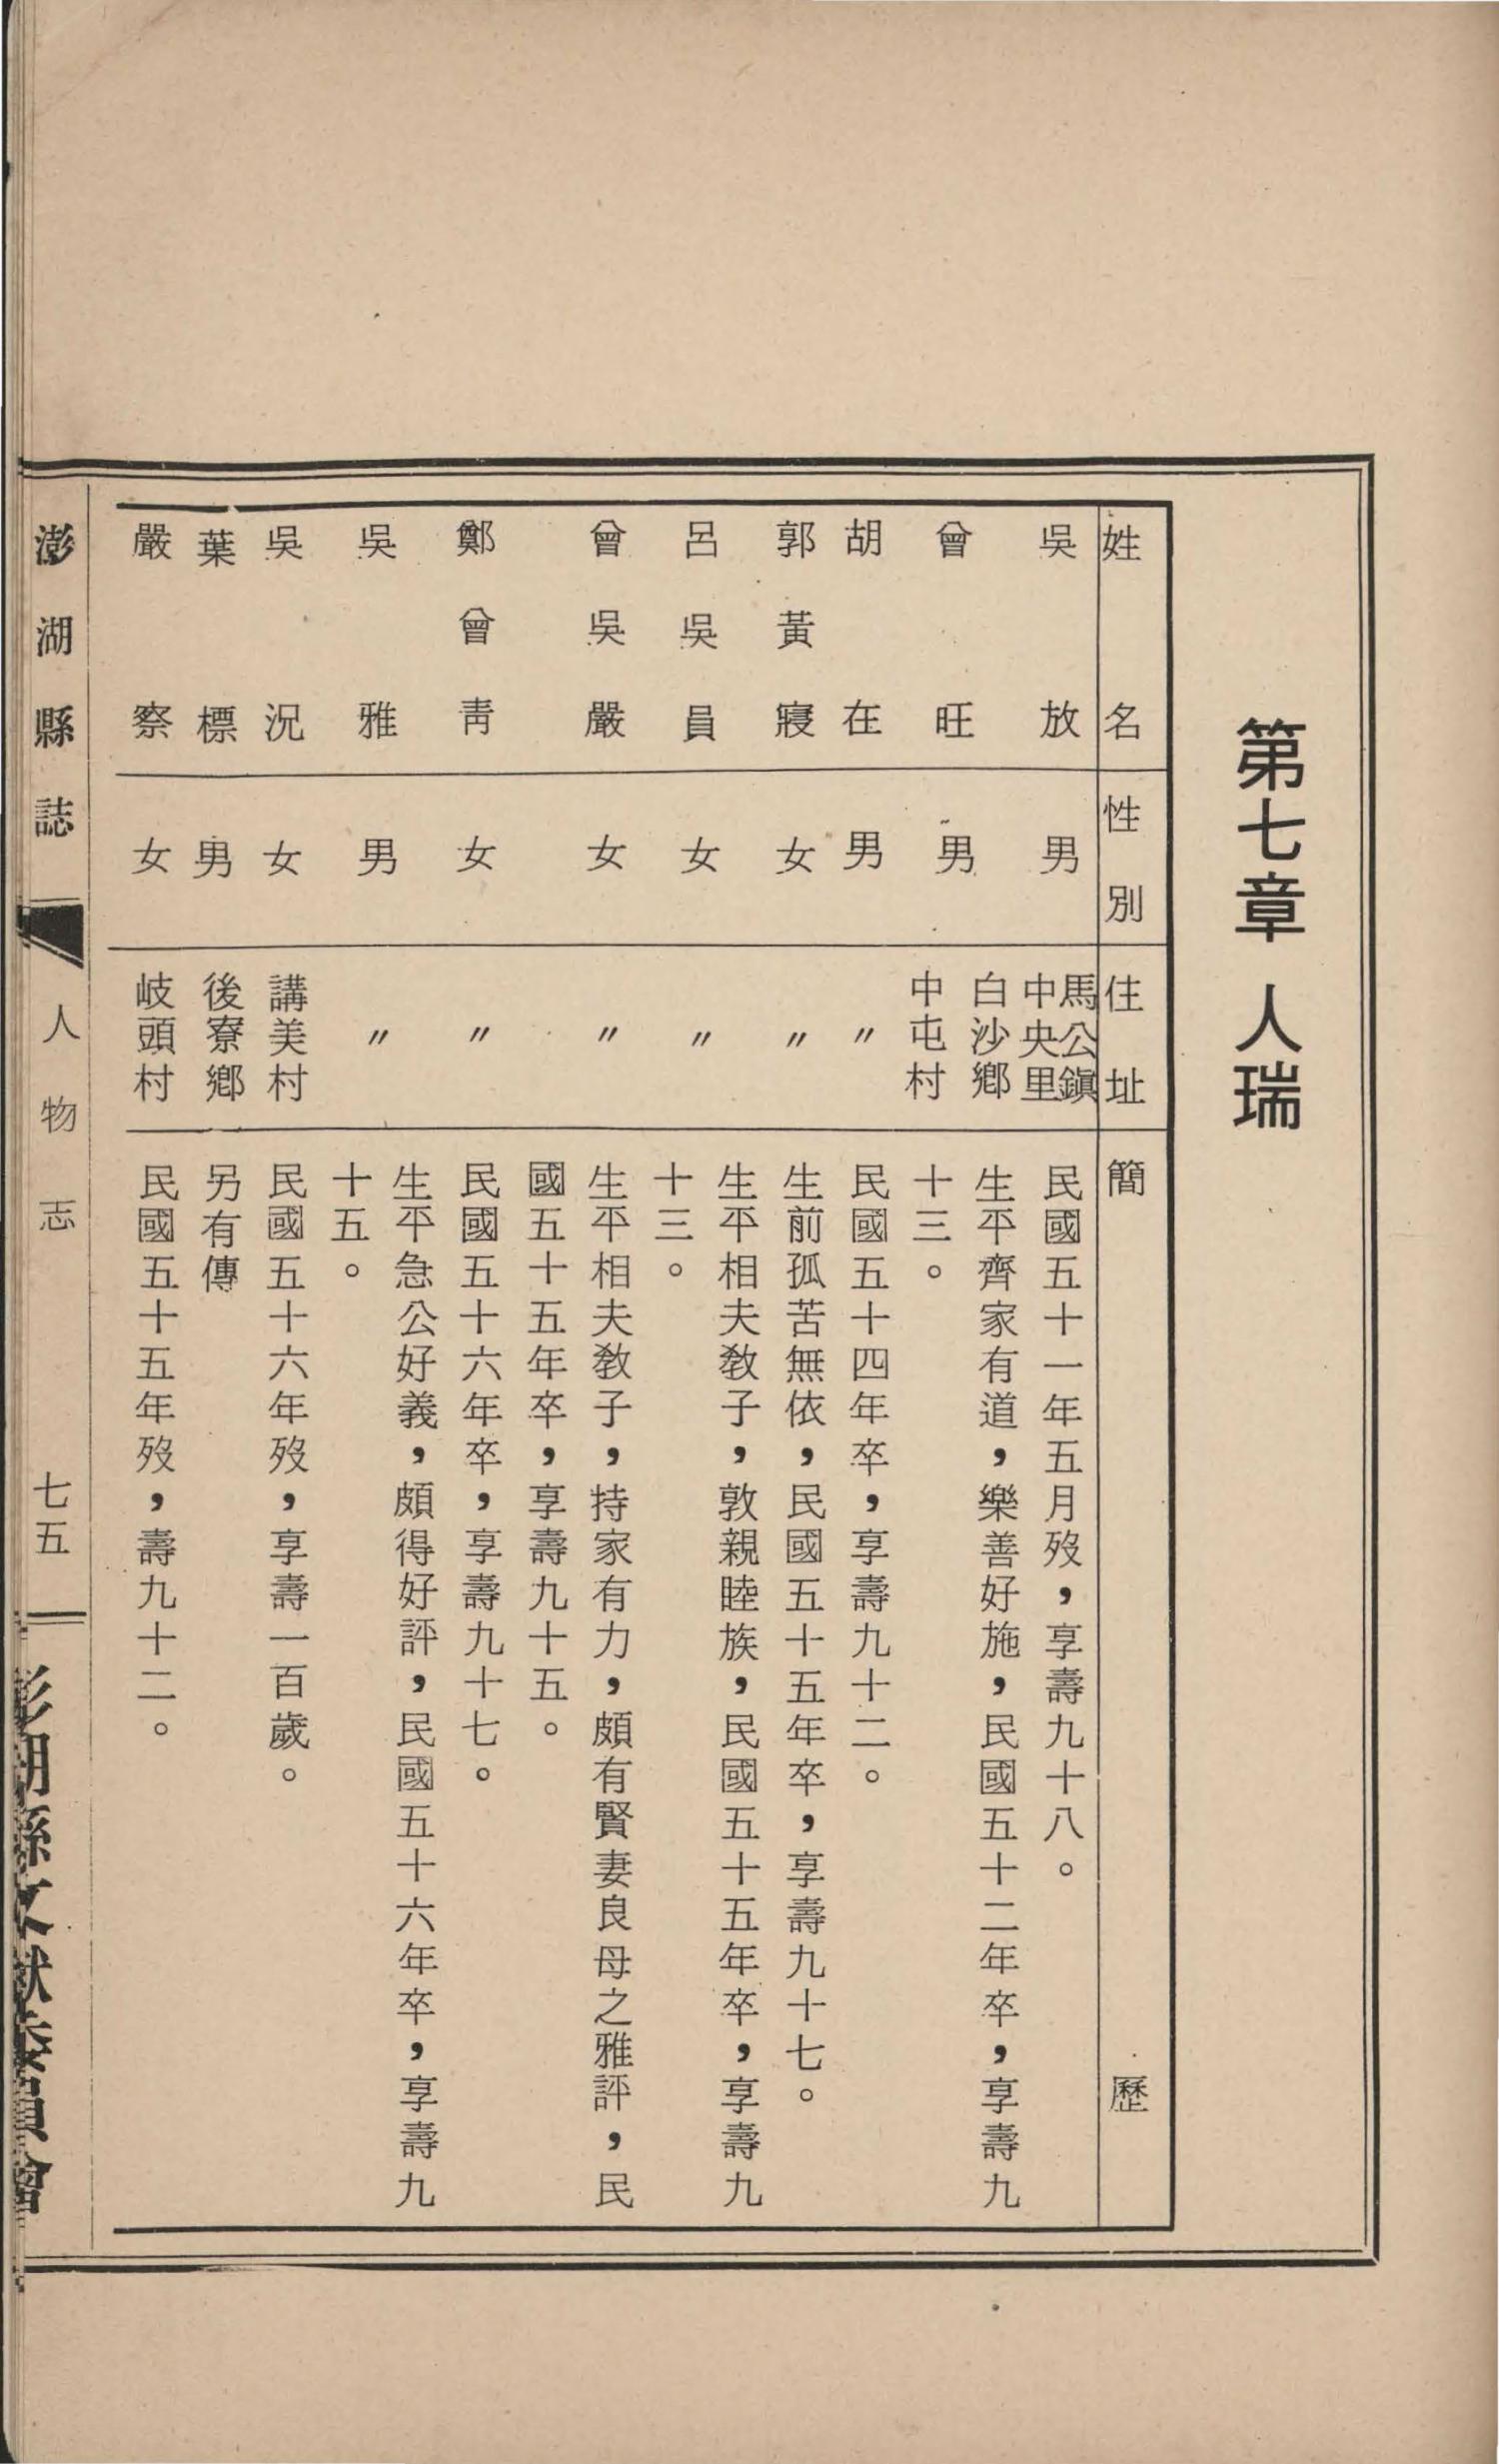 第七章 人瑞
姓名 性別 住址 簡歷
吳放 男 馬公鎭中央里 民國五十一年五月歿，享壽九十八。
曾旺 男 白沙鄉中屯村 生平齊家有道，樂善好施，民國五十二年卒，享壽九
十三。
胡在 男 〃 民國五十四年卒，享壽九十二。
郭黃寢 女 〃 生前孤苦無依，民國五十五年卒，享壽九十七。
呂吳員 女 〃 生平相夫敎子，敦親睦族，民國五十五年卒，享壽九
十三。
曾吳嚴 女 〃 生平相夫敎子，持家有力，頗有賢妻良母之雅評，民
國五十五年卒，享壽九十五。
鄭曾靑 女 〃 民國五十六年卒，享壽九十七。
吳雅 男 〃 生平急公好義，頗得好評，民國五十六年卒，享壽九
十五。
吳況 女 講美村 民國五十六年歿，享壽一百歲。
葉標 男 後寮鄉 另有傳
嚴察 女 岐頭村 民國五十五年歿，壽九十二。
澎湖縣誌 人物志 七五 澎湖縣文獻委員會